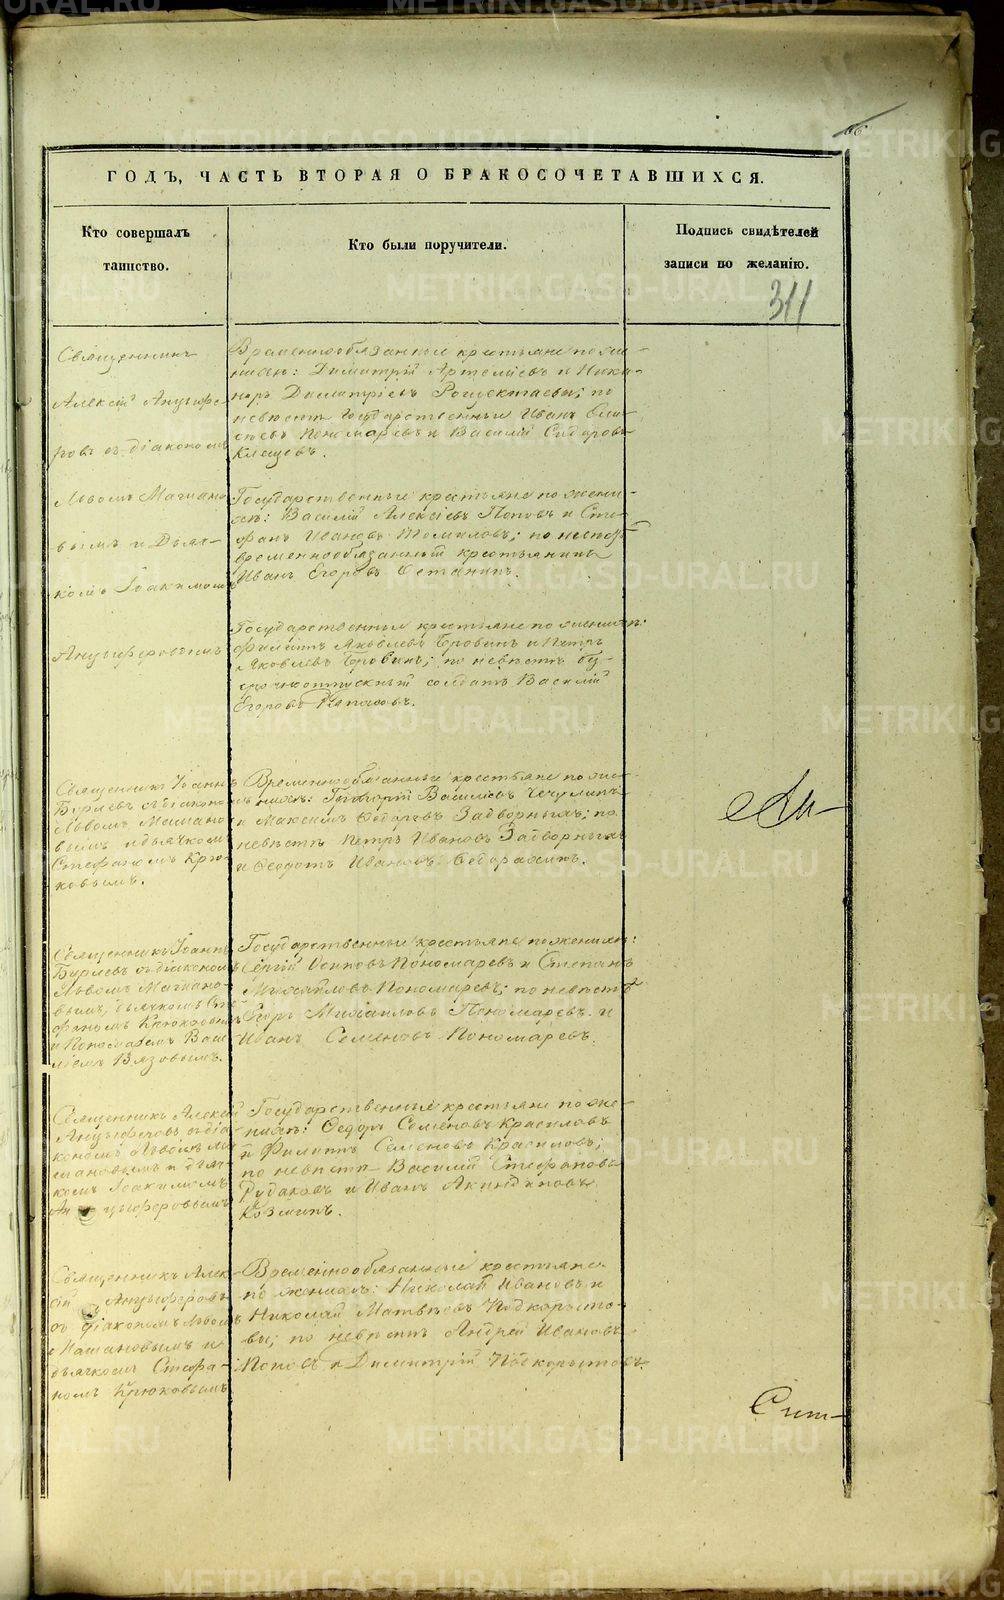 66
ГОДЪ, ЧАСТЬ ВТОРАЯ О БРАКОСОЧЕТАВШИХСЯ.
Кто совершалъ
таинство.
Кто были поручители.
Подпись свидѣтелей
записи по желанію.
311
Священникъ
Алексій Анцыфе-
ровъ съ діакономъ
Львомъ
вымъ и Дьяч-
комъ Іоакимомъ
Анцыферовымъ
Временнообязанные крестьяне по же-
нихѣ: Димитрій Артеміевъ и Ника-
норъ Димитріевъ по
невѣстѣ Государственные Иванъ
Пономаревъ и Василій Сидоровъ
Клещевъ.
Государственные крестьяне по жени-
хѣ: Василій Алексіевъ Поповъ и Сте-
фанъ Ивановъ Томиловъ; по невѣстѣ
временнообязанный крестьянинъ
Иванъ Егоровъ Устанинъ.
Государственные крестьяне по женихѣ:
Филиппъ Яковлевъ Бровинъ и Петръ
Яковлевъ Бровинъ; по невѣстѣ без-
срочноотпускный солдатъ Василій
Егоровъ
Священникъ Іоаннъ
Бурлевъ съ діаконо-
Львомъ
вымъ и дьячкомъ
Стефаномъ Крю-
ковымъ.
Временнообязанные крестьяне по же-
нихѣ: Григорій Василіевъ Чечулинъ
и Максимъ Ѳедоровъ Задворныхъ; по
невѣстѣ Петръ Ивановъ Задворныхъ
и Ѳеодотъ Ивановъ
Священникъ Іоаннъ
Бурлевъ съ діакономъ
Львомъ
вымъ, дьячкомъ Сте-
фаномъ Крюковымъ
и Пономаремъ Васи-
ліемъ Вязовымъ.
Государственные крестьяне по женихѣ:
Сергій Осиповъ Пономаревъ и Степанъ
Михайловъ Пономаревъ; по невѣстѣ
Егоръ Михаиловъ Пономаревъ и
Иванъ Семеновъ Пономаревъ.
Священникъ Алексій
Анцыферовъ съ діа-
кономъ Львомъ
и дьяч-
комъ Іоакимомъ
Анцыферовымъ
Государственные крестьяне по же-
нихѣ: Ѳедоръ Семеновъ Красиловъ
и Филиппъ Семеновъ Красиловъ;
по невѣстѣ Василій Стефановъ
Рудаковъ и Иванъ Акиндиновъ
Козминъ.
Священникъ Алек-
сій Анцыферовъ
съ діакономъ Львомъ
и
дьячкомъ Стефа-
номъ Крюковымъ
Временнообязанные крестьяне
по женихѣ: Николай Ивановъ и
Николай Матвѣевъ Подкорыто-
вы; по невѣстѣ Андрей Ивановъ
Поповъ и Димитрій Подкорытовъ.